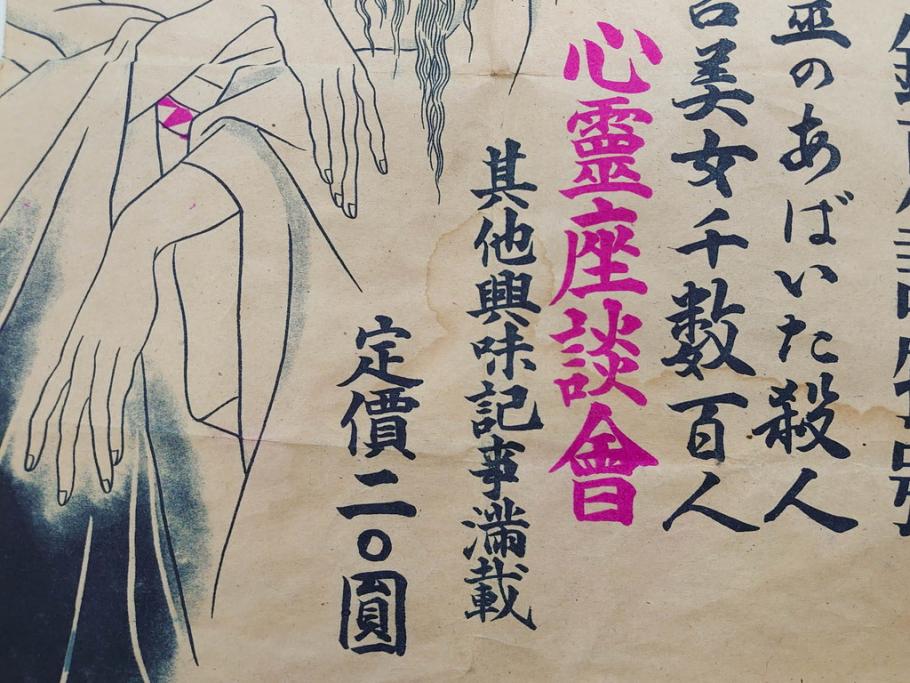 霊のあばいた殺人
美女千数百人
心靈座談會
其他興味記事滿載
定價二〇圓